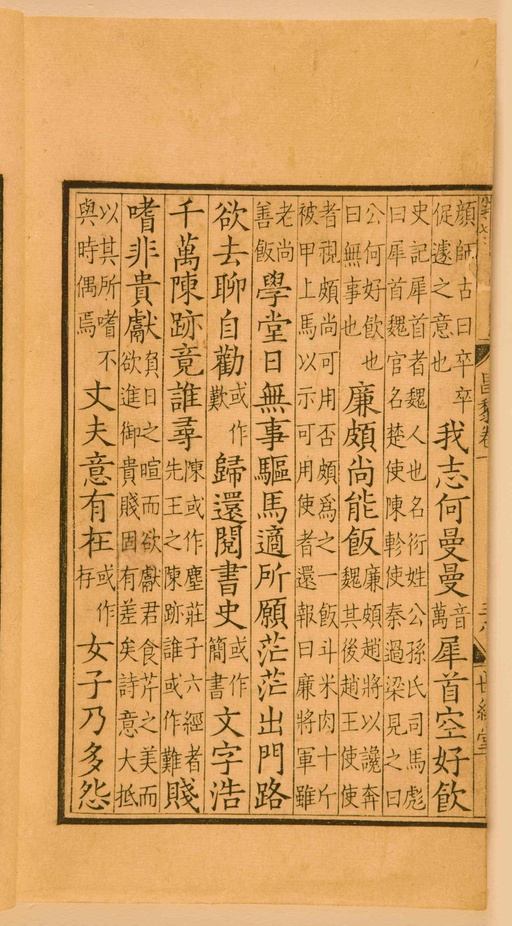 顏師古曰卒卒
促遽之意也
我志何曼曼
音
萬
犀首空好飲
史記犀首者魏人也名衍姓公孫氏司馬彪
曰犀首魏官名楚使陳軫使秦過梁見之曰
公何好飲也
曰無事也
廉頗尚能飯
廉頗趙將以讒奔
魏其後趙王使使
者視頗尚可用否頗爲之一飯斗米肉十斤
被甲上馬以示可用使者還報曰廉將軍雖
老尚
善飯
學堂日無事驅馬適所願茫茫出門路
欲去聊自勸
或作
歎
歸還閱書史
或作
簡書
文字浩
千萬陳跡竟誰尋
陳或作塵莊子六經者
先王之陳跡誰或作難
賤
嗜非貴獻
負日之暄而欲獻君食芹之美而
欲進御貴賤固有差矣詩意大抵
以其所嗜不
與時偶焉
丈夫意有在
或作
存
女子乃多怨